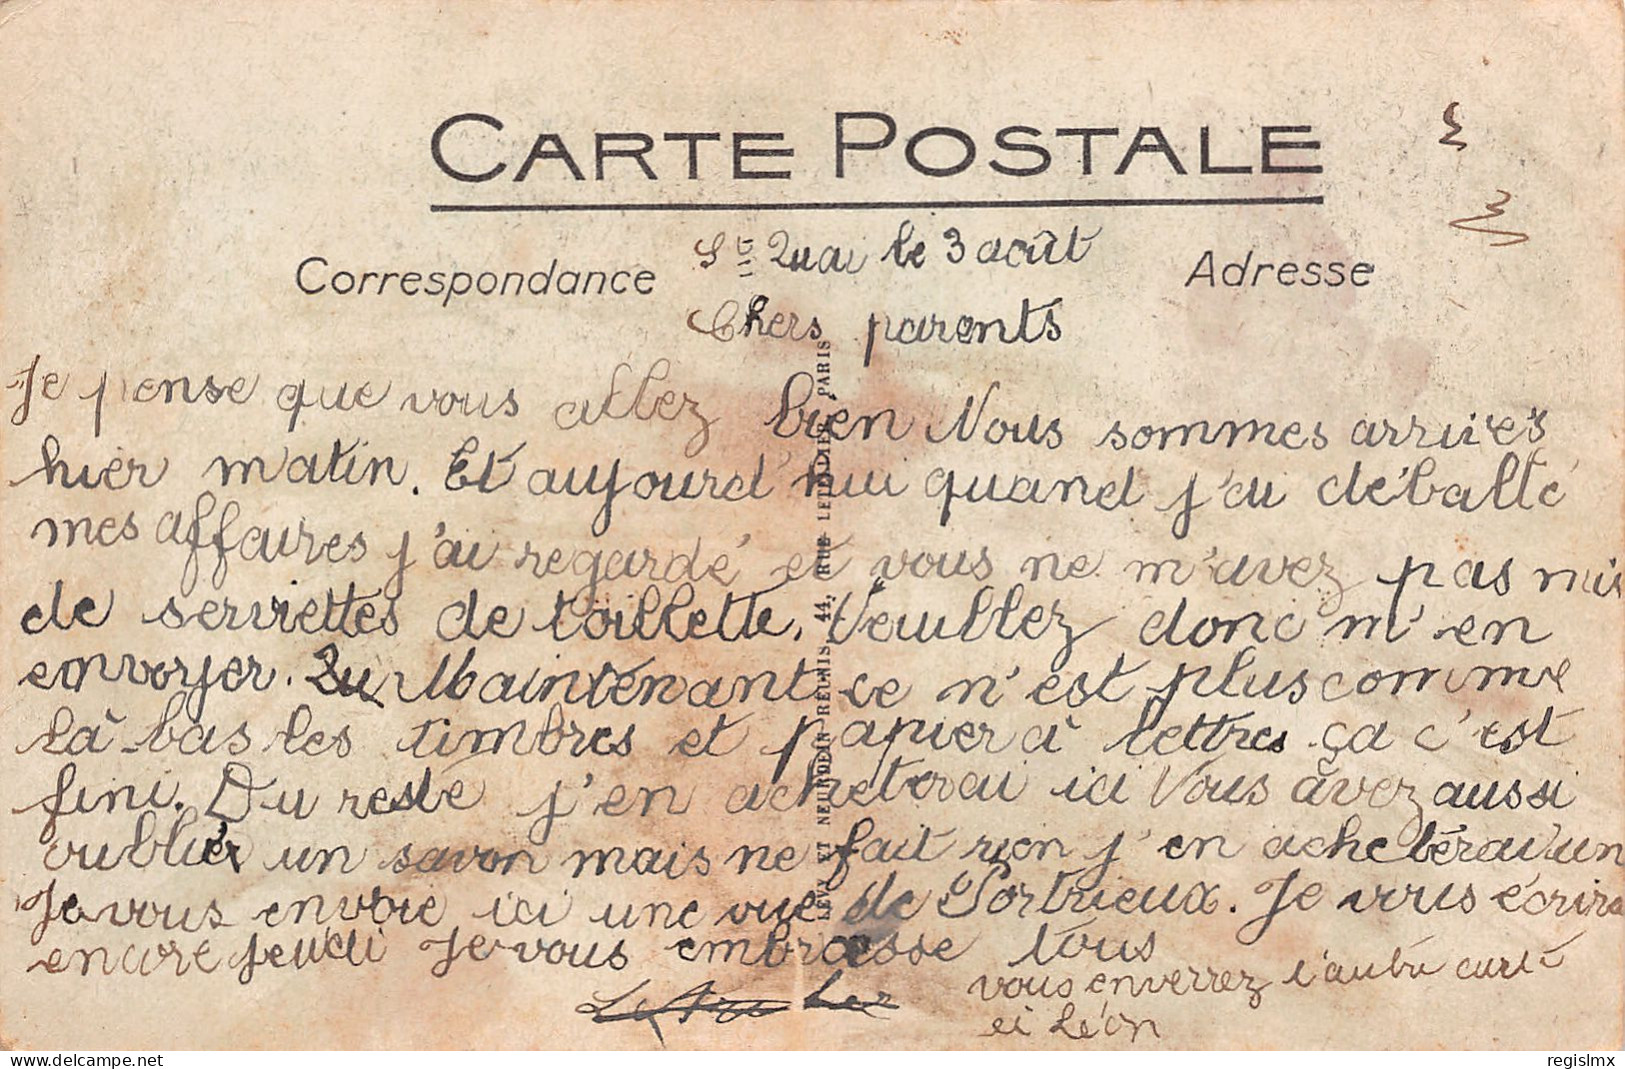 CARTE POSTALE
Correspondance
Adresse
St Quai le 3 août
Chers parents
Je pense que vous allez bien Nous sommes arrivés
hier matin. Et aujourd'hui quand j'ai déballé
mes affaires j'ai regardé et vous ne m'avez pas mis
de serviettes de toillette. Veuillez donc m'en
envoyer. Maintenant ce n'est plus comme
là-bas les timbres et papier à lettres ça c'est
fini. Du reste j'en acheterai ici Vous avez aussi
oublier un savon mais ne fait rien j'en achetérai un
Je vous envoie ici une vue de Portrieux. Je vous écrirai
encore jeudi Je vous embrasse tous
vous enverrez l'autre carte
ei Léon
LEVY ET NEURDEIN RÉUNIS, 44, RUE LETELLIER, PARIS
regislmx
delcampe.net